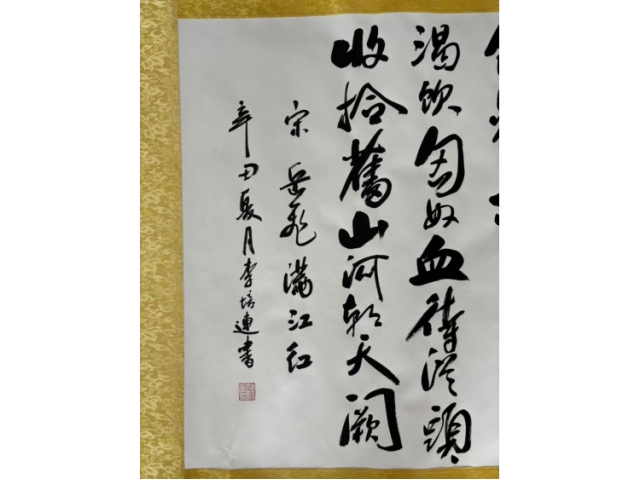 渴飲匈奴血待從頭
收拾舊山河朝天闕
宋岳飛滿江紅
辛丑夏月李培連書